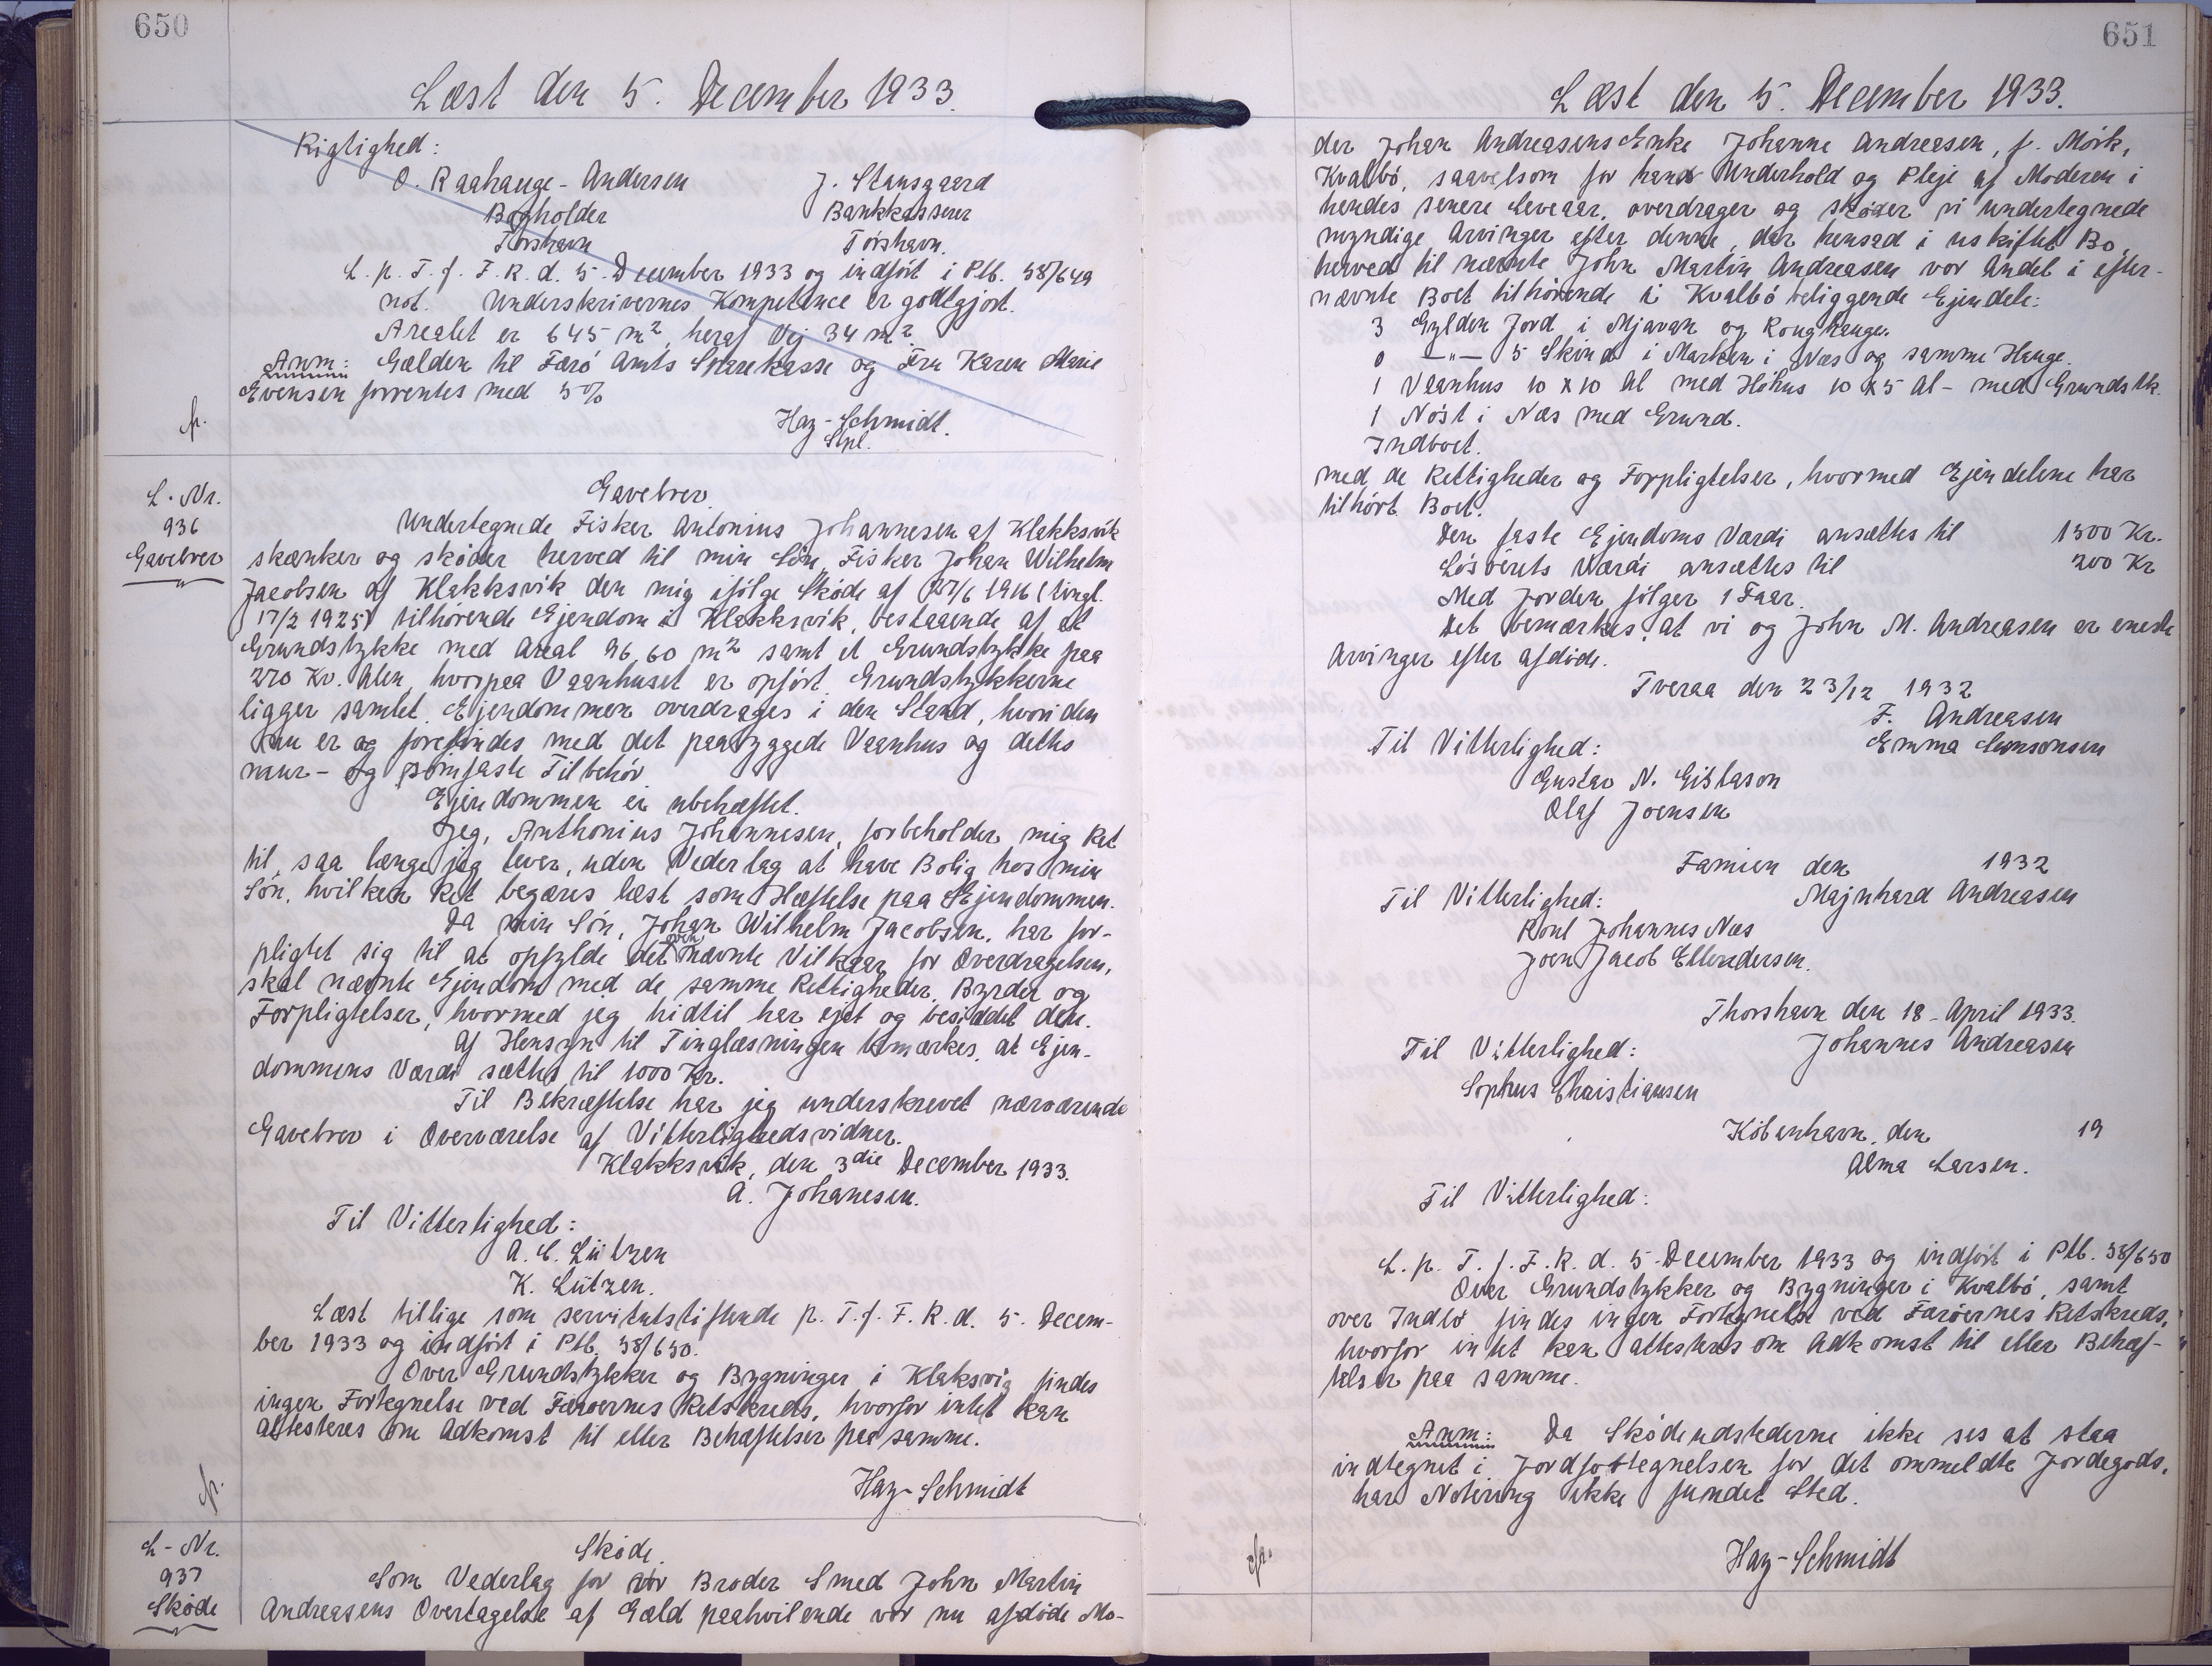 650
Læst den 5. December 1933.
Rigtighed:
O. Raahauge-Andersen J. Stansgaard
Bogholder Bankkasserer
Torshavn Torshavn.
L. p. T. f. F. R. d. 5. December 1933 og indført i Ptb. 38/649
not. Underskrivernes Kompetence er godtgjort.
Arealet er 645 m², heraf Vej 34 m².
Anm: Gælden til Færø Amts Sparekasse og Fru Karen Marie
Evensen forrentes med 5%
Hay-Schmidt.
Stpl.
L. Nr.
936
Gavebrev
Gavebrev.
Undertegnede Fisker Antonius Johannesen af Klakksvik
skænker og skøder herved til min Søn, Fisker Johan Wilhelm
Jacobsen af Klakksvik den mig ifølge Skøde af 27/6 1916 (tingl.
17/2 1925) tilhørende Ejendom i Klakksvik, bestaaende af et
Grundstykke med Areal 96,60 m² samt et Grundstykke paa
270 Kv. Alen, hvorpaa Vaanhuset er opført. Grundstykkerne
ligger samlet. Ejendommen overdrages i den Stand, hvori den
nu er og forefindes med det paabyggede Vaanhus og dettes
mur- og sømfaste Tilbehør
Ejendommen er ubehæftet.
Jeg, Anthonius Johannesen, forbeholder mig Ret
til, saa længe jeg lever, uden Vederlag at have Bolig hos min
Søn, hvilken Ret begæres læst som Hæftelse paa Ejendommen.
Da min Søn, Johan Wilhelm Jacobsen, har for-
pligtet sig til at opfylde det ovennævnte Vilkaar for Overdragelsen,
skal nævnte Ejendom med de samme Rettigheder, Byrder og
Forpligtelser, hvormed jeg hidtil har ejet og besiddet den.
Af Hensyn til Tinglæsningen bemærkes, at Ejen-
dommens Værdi sættes til 1000 Kr.
Til Bekræftelse har jeg underskrevet nærværende
Gavebrev i Overværelse af Vitterlighedsvidner.
Klakksvik, den 3die December 1933.
A. Johanesen.
Til Vitterlighed:
A. C. Lützen
K. Lützen.
Læst tillige som servitutstiftende p. T. f. F. R. d. 5. Decem-
ber 1933 og indført i Ptb. 38/650.
Over Grundstykker og Bygninger i Klaksvig findes
ingen Fortegnelse ved Færøernes Retskreds, hvorfor intet kan
attesteres om Adkomst til eller Behæftelser paa samme.
Hay-Schmidt
L-Nr.
937
Skøde
Skøde.
Som Vederlag for vor Broder Smed John Martin
Andreasens Overtagelse af Gæld paahvilende vor nu afdøde Mo-
651
Læst den 5. December 1933.
der Johan Andreasens Enke Johanne Andreasen, f. Mørk,
Kvalbø, saavelsom for hans Underhold og Pleje af Moderen i
hendes senere Leveaar, overdrager og skøder vi undertegnede
myndige Arvinger efter denne, der hensad i uskiftet Bo,
herved til nævnte John Martin Andreasen vor Andel i efter-
nævnte Boet tilhørende i Kvalbø beliggende Ejendele:
3 Gylden Jord i Mjavan og Roughauge.
0 -"- 5 Skind i Marken i Næs og samme Hauge.
1 Vaanhus 10 x 10 Al med Høhus 10 x 5 Al - med Grundstk.
1 Nøst i Næs med Grund.
Indboet.
med de Rettigheder og Forpligtelser, hvormed Ejendelene har
tilhørt Boet.
Den faste Ejendoms Værdi ansættes til 1500 Kr.
Løsørets Værdi ansættes til 200 Kr
Med Jorden følger 1 Faar.
Det bemærkes, at vi og John M. Andreasen er eneste
Arvinger efter afdøde.
Tveraa den 23/12 1932
F. Andreasen
Til Vitterlighed: Emma Simonsen
Gustav N. Gislason
Olaf Joensen
Famien den 1932
Til Vitterlighed: Majnhard Andreasen
Poul Johannes Næs
Joen Jacob Ellendersen.
Thorshavn den 18. April 1933.
Til Vitterlighed: Johannes Andreasen
Sophus Christiansen
København, den 19
Alma Larsen.
Til Vitterlighed:
L. p. T. f. F. R. d. 5. December 1933 og indført i Ptb. 38/650
Over Grundstykker og Bygninger i Kvalbø, samt
over Indbo findes ingen Fortegnelse ved Færøernes Retskreds,
hvorfor intet kan attesteres om Adkomst til eller Behæf-
telser paa samme.
Anm: Da Skødeudstederne ikke ses at staa
indtegnet i Jordfortegnelsen for det ommeldte Jordegods,
har Notering ikke fundet Sted.
Hay-Schmidt